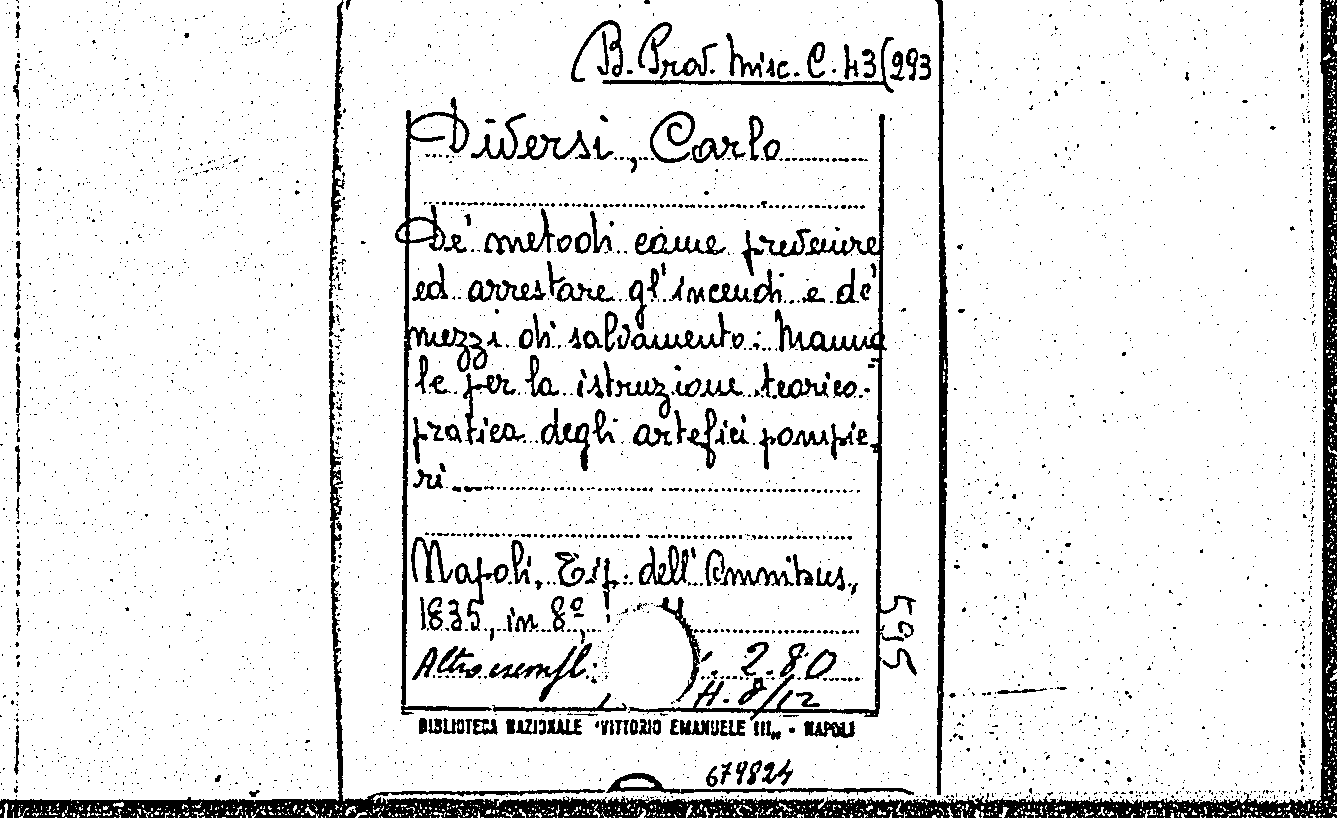 B. Prov. Misc. C. 43(293
Diversi, Carlo
De' metodi come prevenire
ed arrestare gl'incendi e de'
mezzi di salvamento: Manua
le per la istruzione teorico-
pratica degli artefici pompie-
ri...
Napoli, Tip. dell'Omnibus,
1835, in 8º
595
Altro esempl:
2.80
H. 8/12
BIBLIOTECA NAZIONALE "VITTORIO EMANUELE III„ - NAPOLI
679824